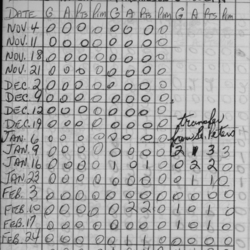 DATE G A Pts Pim G A Pts Pim G A Pts Pim
NOV. 4 0 0 0 0 0 0 0 0
NOV. 11 0 0 0 0 0 0 0 0
NOV. 18 0 0 0 0 0 0 0 0
NOV. 21 0 0 0 0 0 0 0 0
DEC. 2 0 0 0 0 0 0 0 0
DEC. 9 0 0 0 0 0 0 0 0
DEC. 12 0 0 0 0 0 0 0 0
DEC. 19 0 0 0 0 0 0 0 0 transfer
JAN. 6 0 0 0 0 0 0 0 0 from
JAN. 9 0 0 0 0 0 0 0 0 2 1 3 3
JAN. 16 0 0 0 0 1 0 1 0 0 2 2 0
JAN. 23 0 0 0 0 0 0 0 0 0 1 1 0
FEB. 3 0 0 0 0 0 0 0 0 0 0 0 0
FEB. 10 0 0 0 0 0 2 2 0 1 0 1 0
FEB. 17 0 0 0 0 0 0 0 0 1 0 1 0
FEB. 24 0 0 0 0 0 1 1 0 0 0 0 0